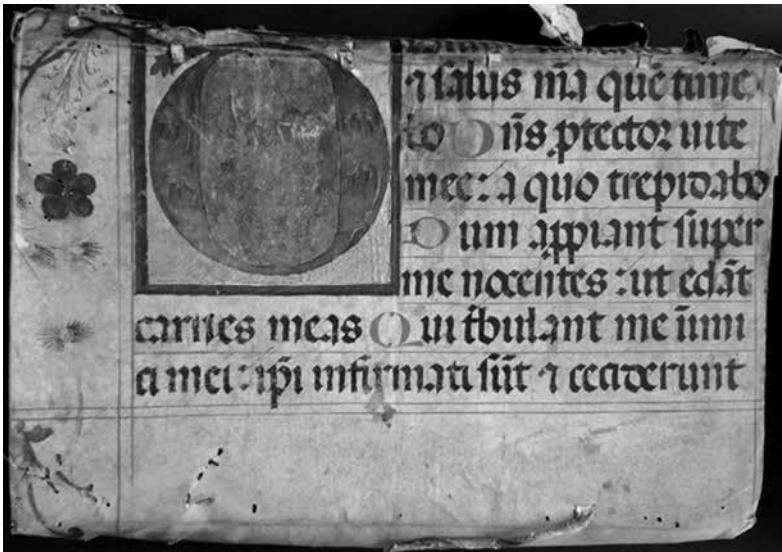 ⁊ salus m̄a quē time
bo Dn̄s ꝓtector uite
mee : a quo trepidabo
Dum appiant super
me nocentes : ut edāt
carnes meas Qui t̄bulant me inimi
ci mei : ip̄i infirmati sūt ⁊ ceciderunt